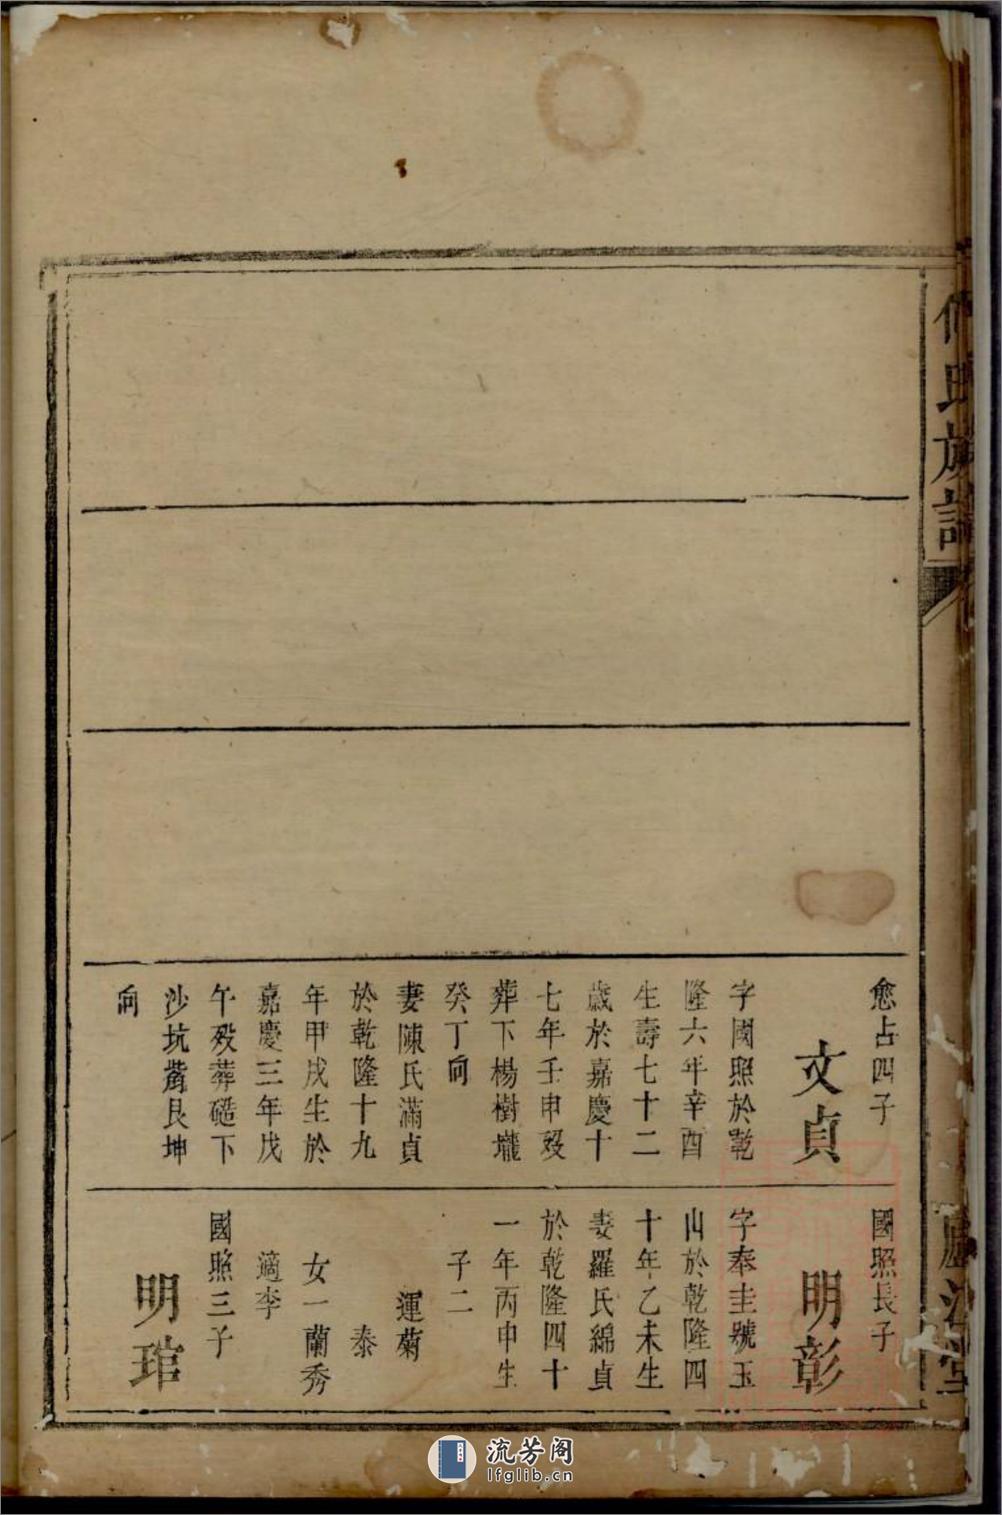 何氏族譜
廬江堂
愈占四子
文貞
字國照於乾
隆六年辛酉
生壽七十二
歲於嘉慶十
七年壬申歿
葬下楊樹壠
癸丁向
妻陳氏滿貞
於乾隆十九
年甲戌生於
嘉慶三年戊
午歿葬硞下
沙坑觜艮坤
向
國照長子
明彰
字奉圭號玉
山於乾隆四
十年乙未生
妻羅氏綿貞
於乾隆四十
一年丙申生
子二
運菊
泰
女一蘭秀
適李
國照三子
明琯
流芳阁
lfglib.cn